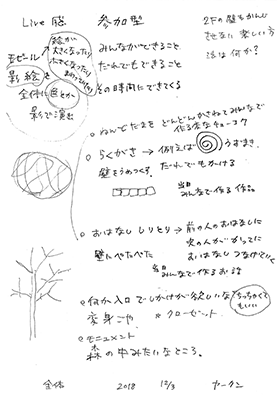 Live 感 参加型
絵が
大きくなったり
大きくなったり
モビール
影絵を
全体に色とか
影で演出
みんなができること
だれでもできること
その時間にできてくる
2Fの壁もかんし
楽しい方
法は何か?
どんどんかさねてみんなで
らくがき → 例えば うずまき
壁をうめつくす だれでもかける
当日
みんなで作る作品
おはなししりとり → 前の人のおはなしに
次の人がかってに
おはなしつなげていく
壁にぺたぺた
当日
みんなで作るお話
何か入口でしかけが欲しいな ちっちゃくて
もいい
変身ごや * クローゼット
モニュメント
森の中みたいなところ。
全体 2018 12/3